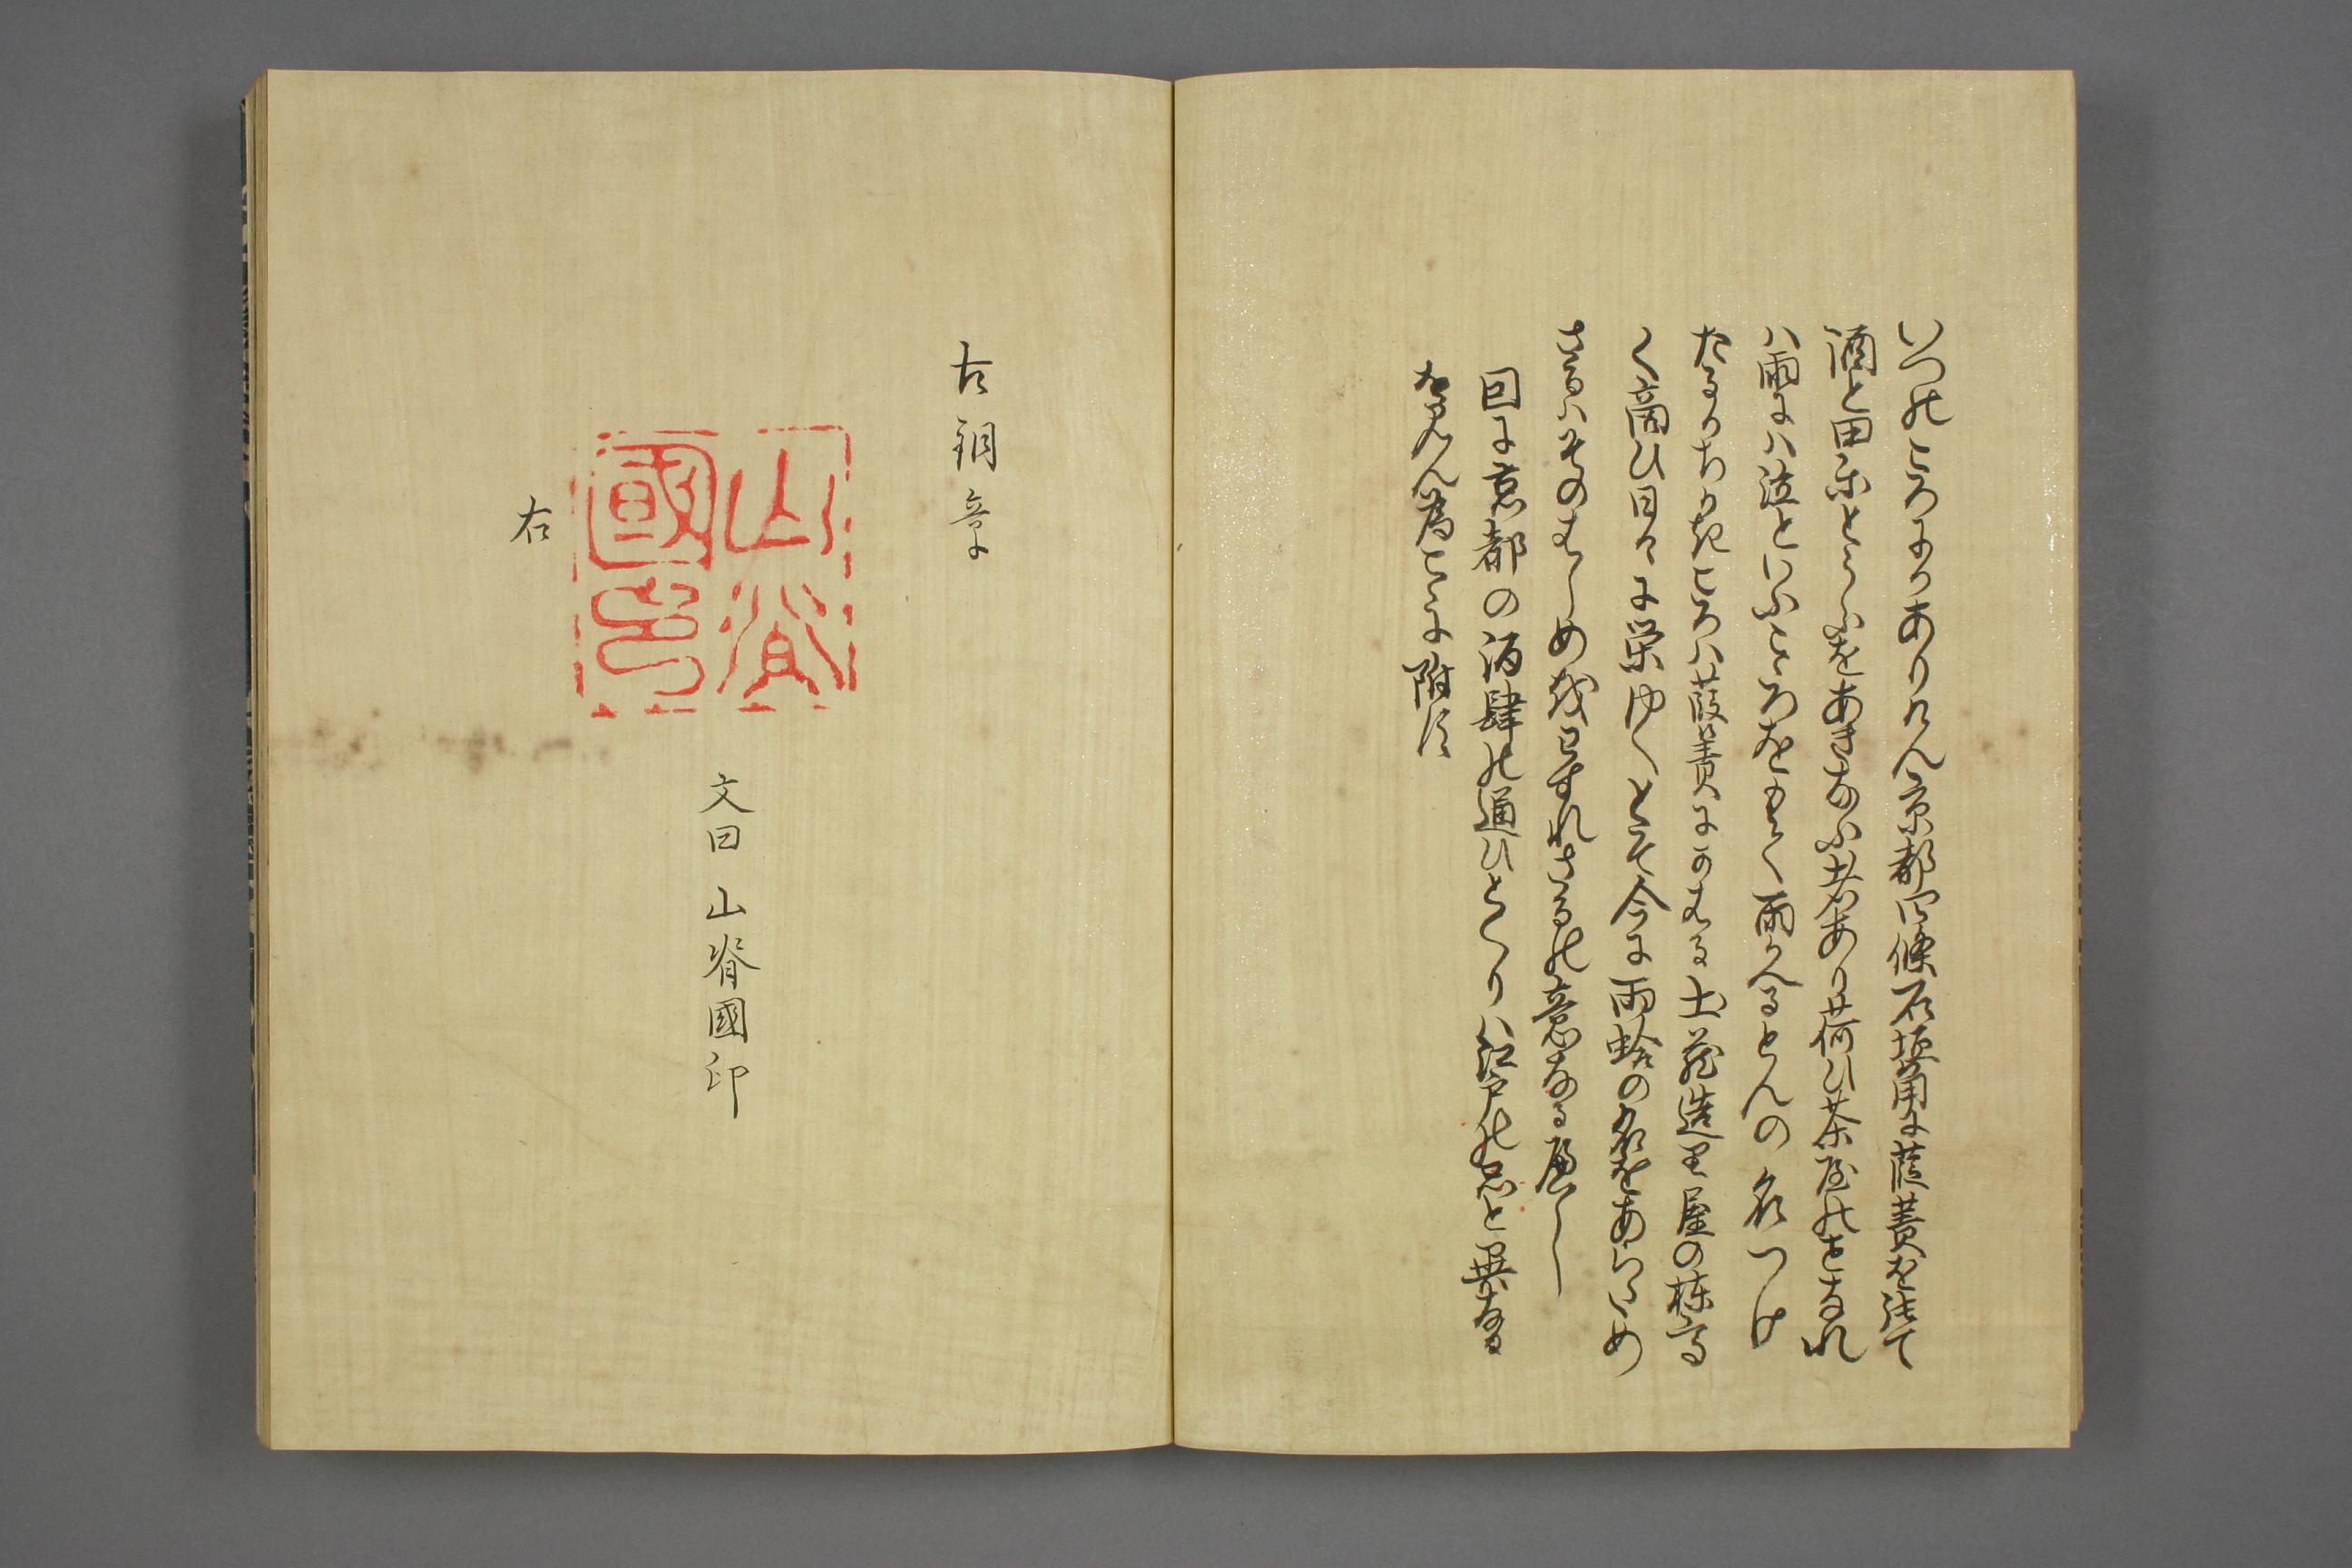 いつのころにかありけん京都四條石垣角に葭簀を張て
酒と田楽とうふをあきなふ者あり荷ひ茶屋のとなれ
ハ雨にハ泣といふこゝろをもて雨かへるとんの名つけ
たるかちかきころハ葭簀にかはる土蔵造里屋の棟高
く商ひ日々に栄ゆくとそ今に雨蛤の名をあらため
さるハそのはしめをわすれさるの意なるへし
因に京都の酒肆の通ひとくりハ江戸の製と異なる
をみん為こゝに附す
古銅章
山脊國印
文曰 山脊國印
右